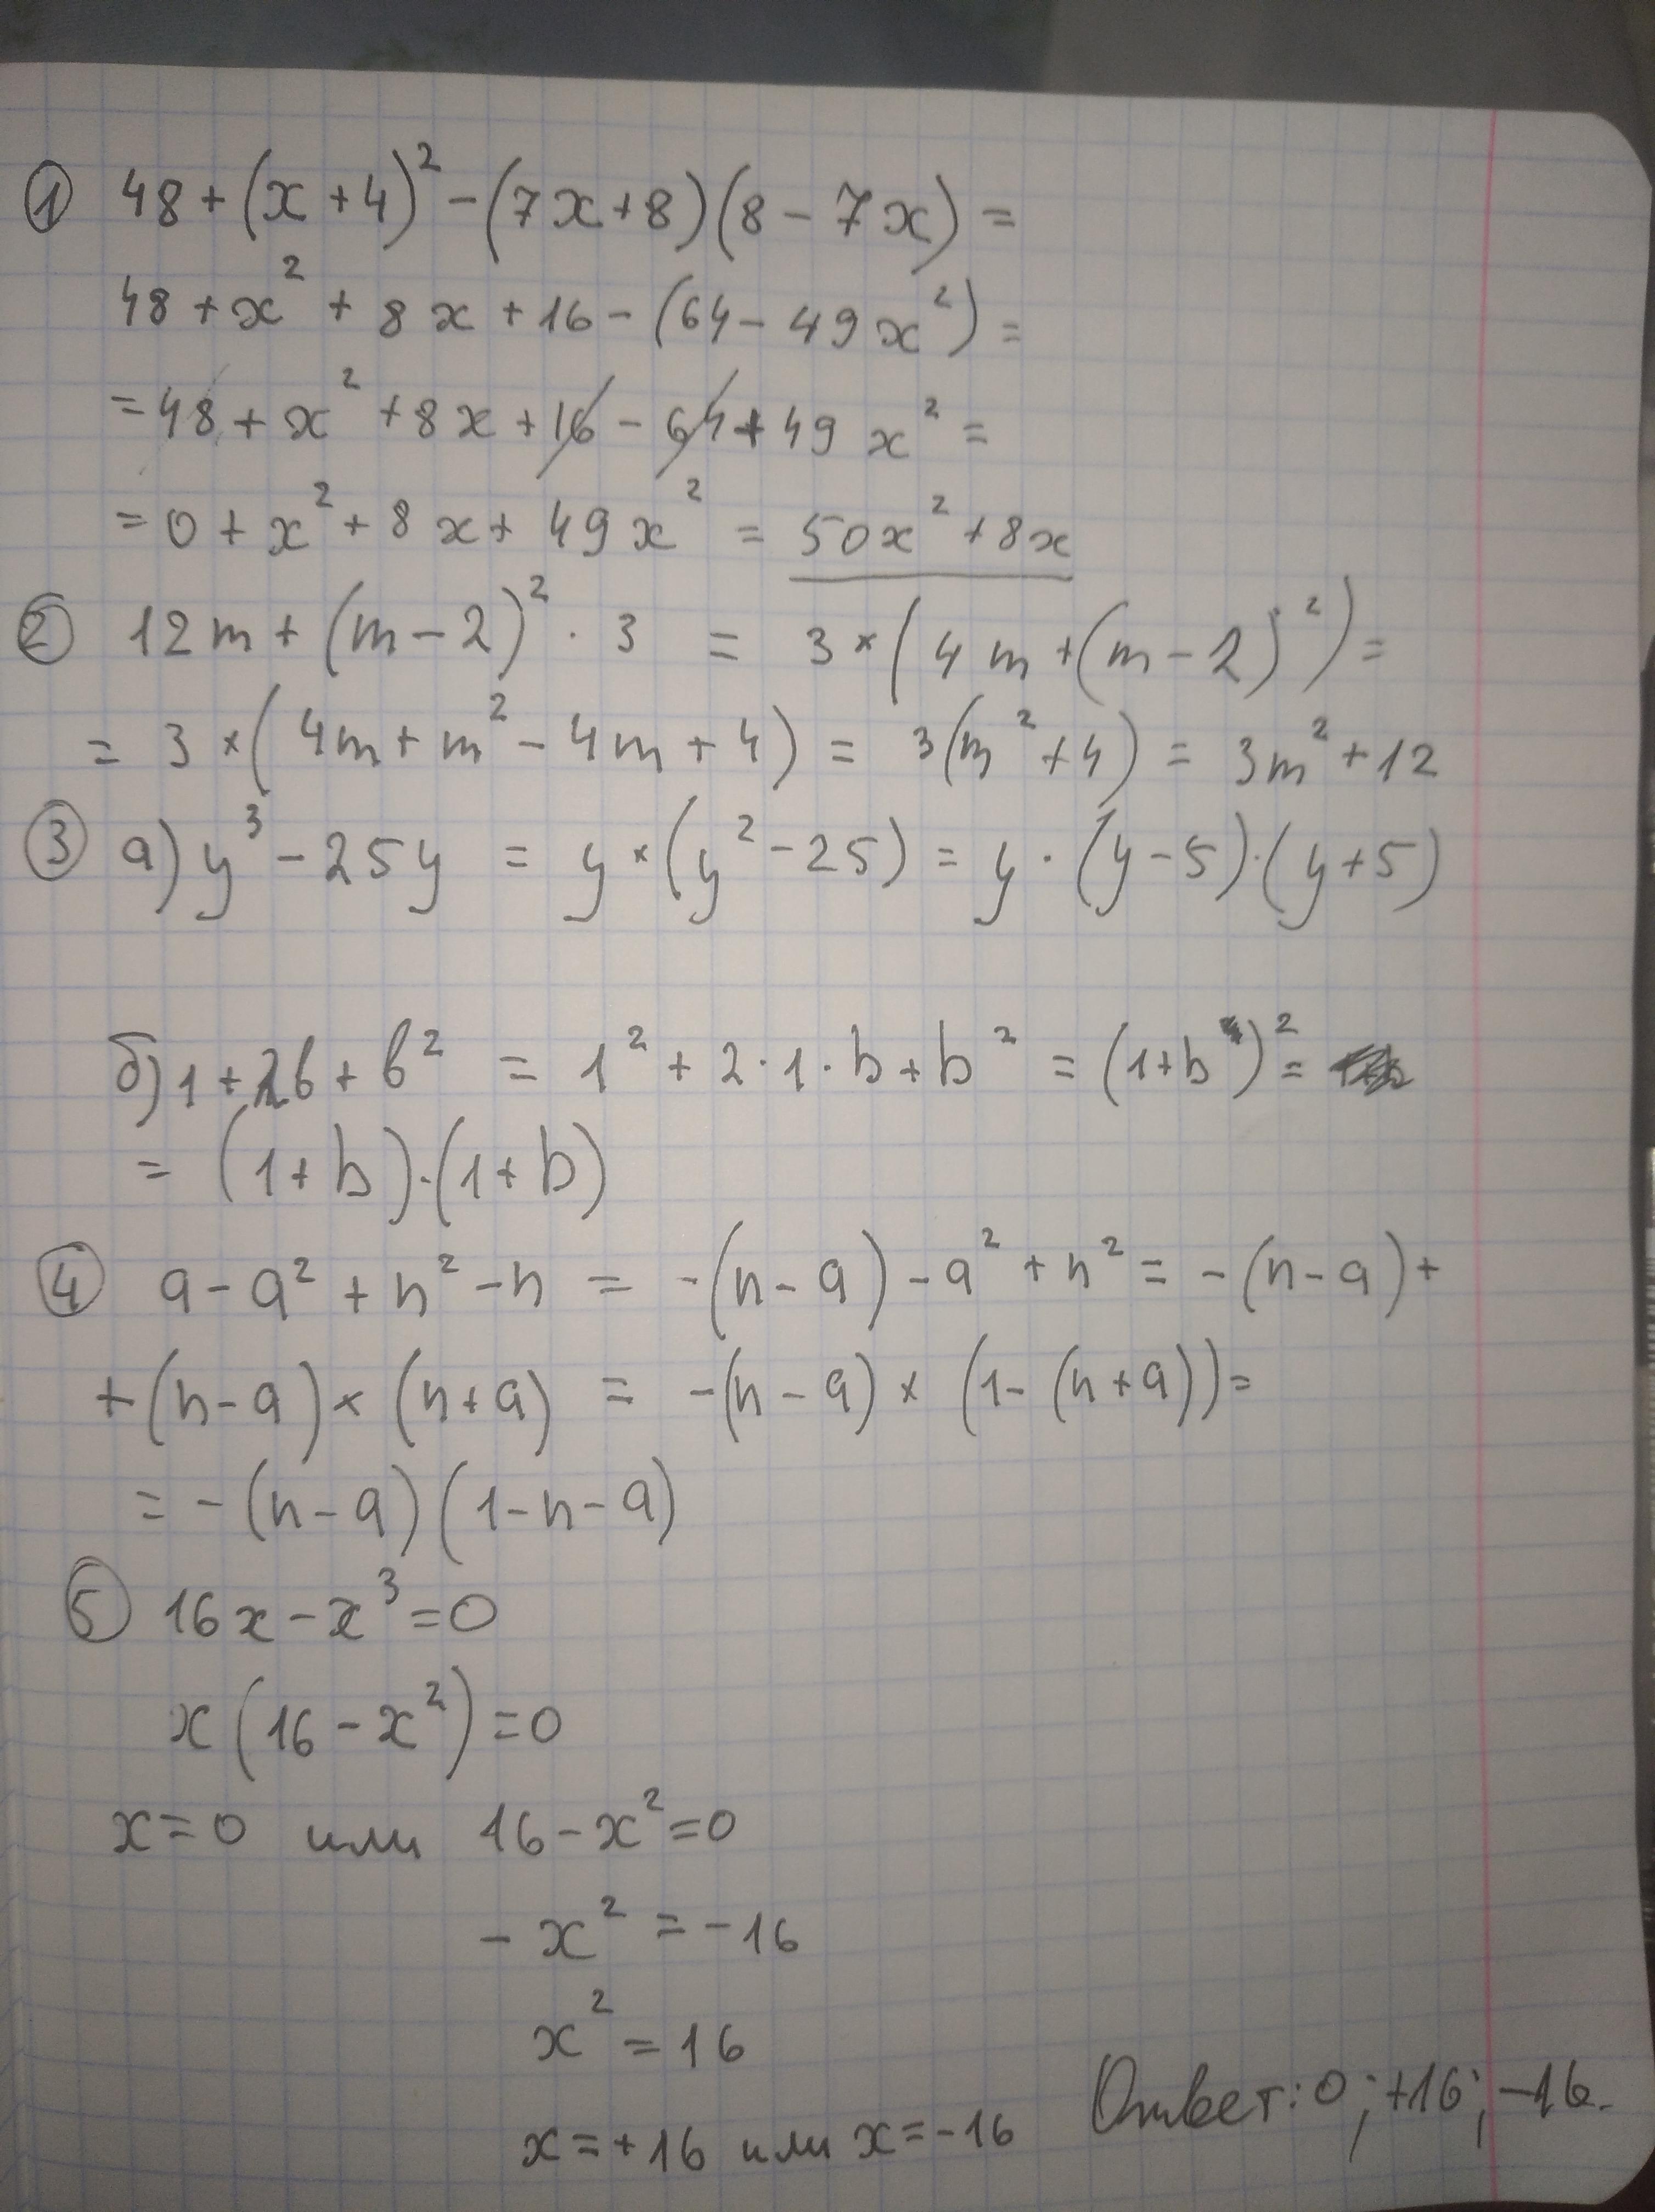 ① 48 + (x + 4)² - (7x + 8)(8 - 7x) =
48 + x² + 8x + 16 - (64 - 49x²) =
= 48 + x² + 8x + 16 - 64 + 49x² =
= 0 + x² + 8x + 49x² = 50x² + 8x
② 12m + (m - 2)² · 3 = 3 × (4m + (m - 2)²) =
= 3 × (4m + m² - 4m + 4) = 3(m² + 4) = 3m² + 12
③ а) y³ - 25y = y × (y² - 25) = y · (y - 5) · (y + 5)
б) 1 + 2b + b² = 1² + 2 · 1 · b + b² = (1 + b)² =
= (1 + b) · (1 + b)
④ a - a² + n² - n = -(n - a) - a² + n² = -(n - a) +
+ (n - a) × (n + a) = -(n - a) × (1 - (n + a)) =
= -(n - a)(1 - n - a)
⑤ 16x - x³ = 0
x(16 - x²) = 0
x = 0 или 16 - x² = 0
- x² = -16
x² = 16
x = +16 или x = -16 Ответ: 0; +16; -16.